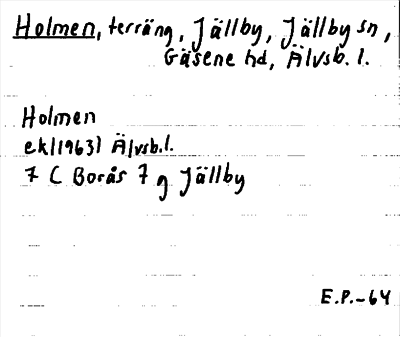 Holmen, terräng, Jällby, Jällby sn,
Gäsene hd, Älvsb. l.
Holmen
ek(1963) Älvsb.l.
7 C Borås 7 g Jällby
E.P.-64